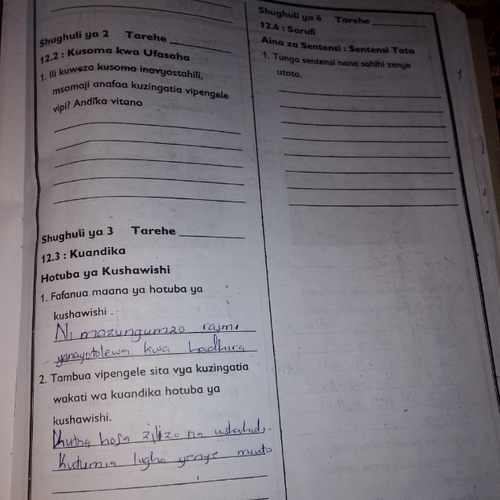 Shughuli ya 2 Tarehe
12.2 : Kusoma kwa Ufasaha
1. Ili kuweza kusoma inavyostahili,
msomaji anafaa kuzingatia vipengele
vipi? Andika vitano
Shughuli ya 3 Tarehe
12.3 : Kuandika
Hotuba ya Kushawishi
1. Fafanua maana ya hotuba ya
kushawishi .
Ni mazungumzo rasmi
yanayotolewa kwa hadhira
2. Tambua vipengele sita vya kuzingatia
wakati wa kuandika hotuba ya
kushawishi.
hoja zilizo na
Kutumia lugha yenye mvuto
Shughuli ya 4 Tarehe
12.4 : Sarufi
Aina za Sentensi : Sentensi Tata
1. Tunga sentensi nane sahihi zenye
utata.